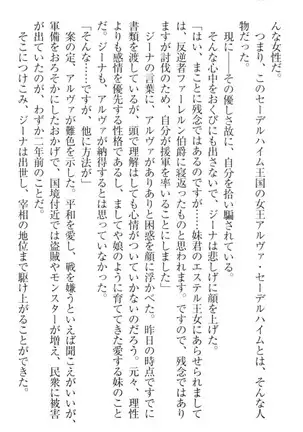 んな女性だ。
つまり、このセーデルハイム王国の女王アルヴァ・セーデルハイムとは、そんな人
物だった。
現に――その優しさ故に、自分を拾い騙されている。
そんな心中をおくびにも出さないで、ジーナは悲しげに顔を上げた。
「はい、まことに残念ではあるのですが……妹君のエステル王女にあらせられまして
は、反逆者ファーレルン伯爵に寝返ったものかと思われます。ですので、残念ではあり
ますが討伐のため、自分が援軍を率いていることにしました」
ジーナの言葉に、アルヴァがありありと困惑を顔に浮かべた。昨日の時点で
書類を渡しているが、頭で理解はしても心情がついていかないのだろう。元々、理性
よりも感情を優先する性格であるし、ましてや娘のように育ててきた愛する妹のこと
だ。ジーナも、アルヴァが納得するとは思っていなかった。
「そんな……ですが、他に方法が」
案の定、アルヴァが難色を示した。平和を愛し、戦を嫌うといえば聞こえがいいが、
軍備をおろそかにしたおかげで、国境付近では盗賊やモンスターが増え、民衆に被害
が出ていたのが、わずか二年前のことだ。
そこにつけこみ、ジーナは出世し、宰相の地位まで駆け上がることができた。